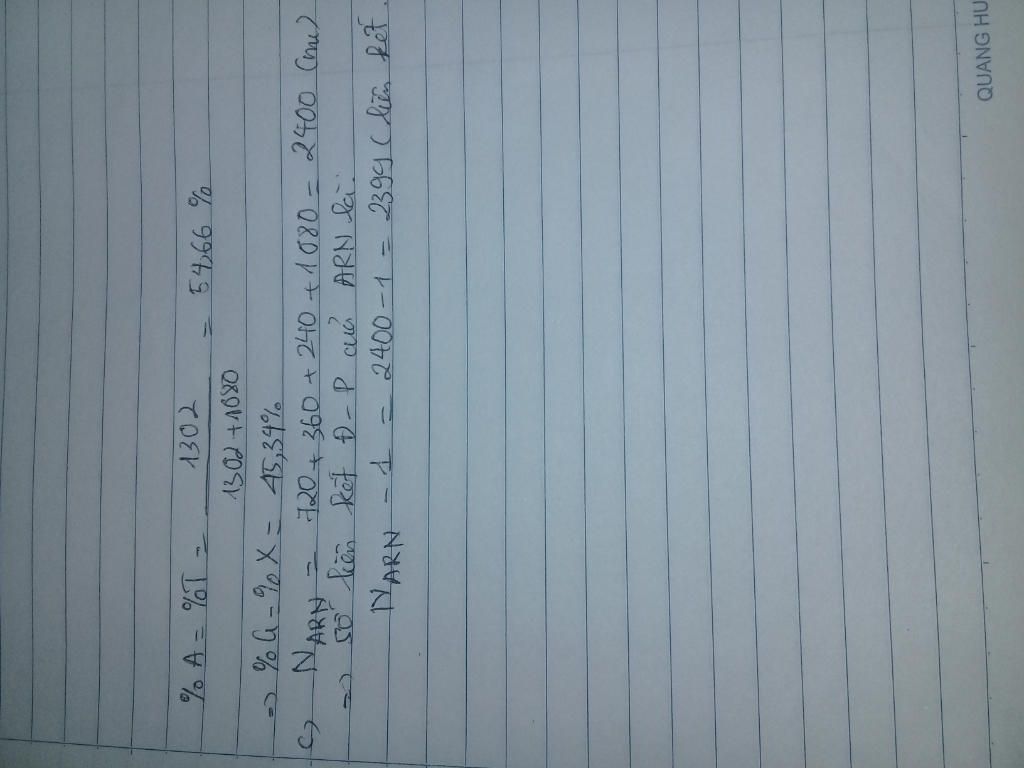 % A = %T = 1302 / 1302 + 1080 = 54,66 %
=> % G = % X = 45,34%
c, N ARN = 720 + 360 + 240 + 1080 = 2400 (nu)
=> Số liên kết Đ - P của ARN là:
N ARN - 1 = 2400 - 1 = 2399 ( liên kết.
QUANG HU